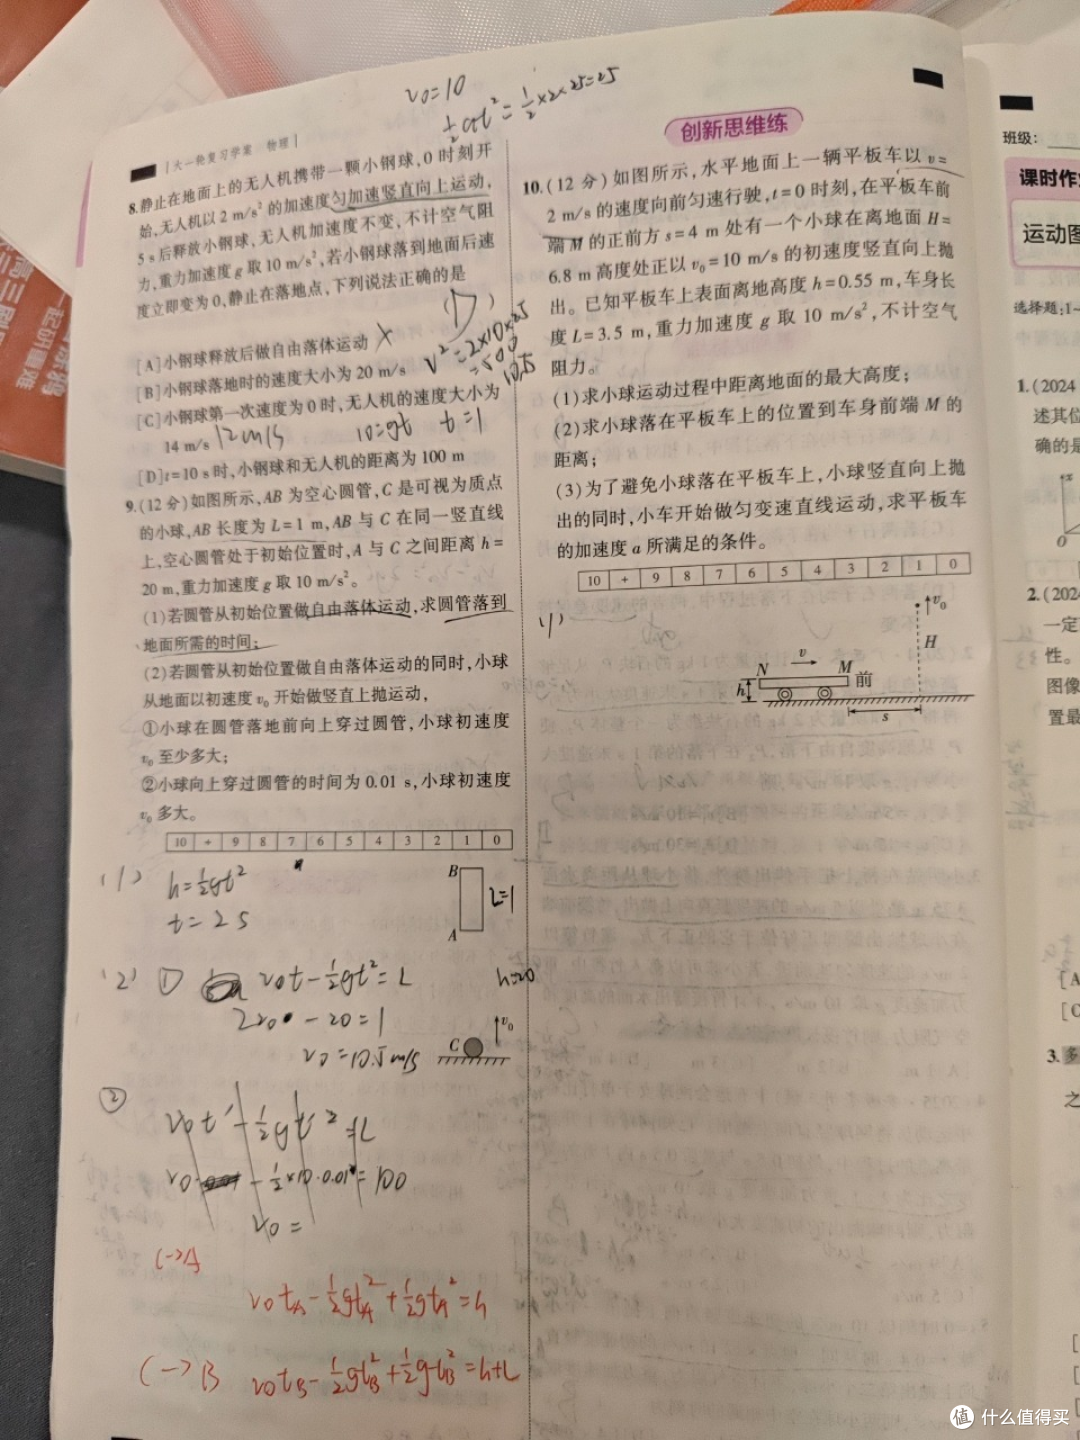 v0=10
½at²=½×2×25=25
[大一轮复习学案 物理]
8.静止在地面上的无人机携带一颗小钢球,0 时刻开
始,无人机以 2 m/s² 的加速度匀加速竖直向上运动,
5 s 后释放小钢球,无人机加速度不变,不计空气阻
力,重力加速度 g 取 10 m/s²,若小钢球落到地面后速
度立即变为 0,静止在落地点,下列说法正确的是
( D )
[A]小钢球释放后做自由落体运动 ×
[B]小钢球落地时的速度大小为 20 m/s
v²=2×10×25
=500
10√5
[C]小钢球第一次速度为 0 时,无人机的速度大小为
14 m/s 12m/s 10=gt t=1
[D]t=10 s 时,小钢球和无人机的距离为 100 m
9.(12 分)如图所示,AB 为空心圆管,C 是可视为质点
的小球,AB 长度为 L=1 m,AB 与 C 在同一竖直线
上,空心圆管处于初始位置时,A 与 C 之间距离 h=
20 m,重力加速度 g 取 10 m/s²。
(1)若圆管从初始位置做自由落体运动,求圆管落到
地面所需的时间;
(2)若圆管从初始位置做自由落体运动的同时,小球
从地面以初速度 v0 开始做竖直上抛运动,
①小球在圆管落地前向上穿过圆管,小球初速度
v0 至少多大;
②小球向上穿过圆管的时间为 0.01 s,小球初速度
v0 多大。
10 + 9 8 7 6 5 4 3 2 1 0
(1) h=½gt²
t=2s
B
L=1
A
(2) ① v0t-½gt²=L
h=20
2v0-20=1
v0=10.5m/s
C v0
②
v0t-½gt²=L
v0
-½×10·0.01²=100
v0=
C→A
v0tA-½gtA²+½gtA²=h
C→B v0tB-½gtB²+½gtB²=h+L
创新思维练
10.(12 分)如图所示,水平地面上一辆平板车以 v=
2 m/s 的速度向前匀速行驶,t=0 时刻,在平板车前
端 M 的正前方 s=4 m 处有一个小球在离地面 H=
6.8 m 高度处正以 v0=10 m/s 的初速度竖直向上抛
出。已知平板车上表面离地高度 h=0.55 m,车身长
度 L=3.5 m,重力加速度 g 取 10 m/s²,不计空气
阻力。
(1)求小球运动过程中距离地面的最大高度;
(2)求小球落在平板车上的位置到车身前端 M 的
距离;
(3)为了避免小球落在平板车上,小球竖直向上抛
出的同时,小车开始做匀变速直线运动,求平板车
的加速度 a 所满足的条件。
10 + 9 8 7 6 5 4 3 2 1 0
(1)
v0
H
v
N M 前
h
s
班级:
课时作
运动图
选择题:1~
1.(2024
述其位
确的是
x
O
2.(2024
一定
性。
图像
置最
[A
[C
3.多
之
什么值得买